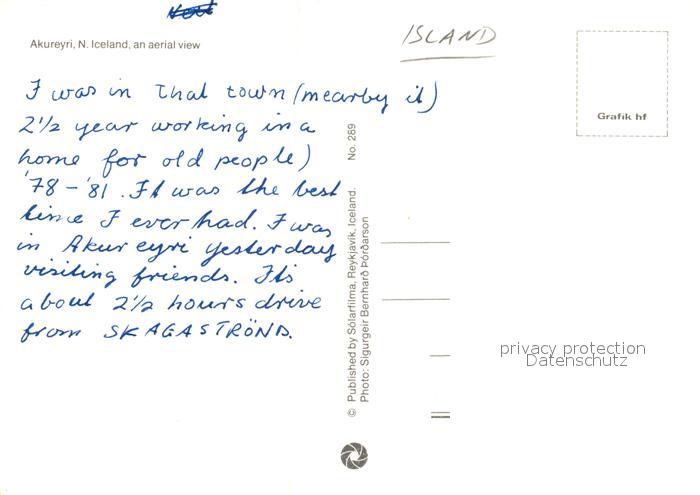 Akureyri, N. Iceland, an aerial view
ISLAND
Grafik hf
I was in that town (mearby it)
2 1/2 year working in a
home for old people)
'78 - '81. It was the best
time I ever had. I was
in Akureyri yesterday
visiting friends. Its
about 2 1/2 hours drive
from SKAGASTRÖND.
© Published by Sólarfilma, Reykjavík, Iceland. No. 289
Photo: Sigurgeir Bernharð Þórðarson
privacy protection
Datenschutz